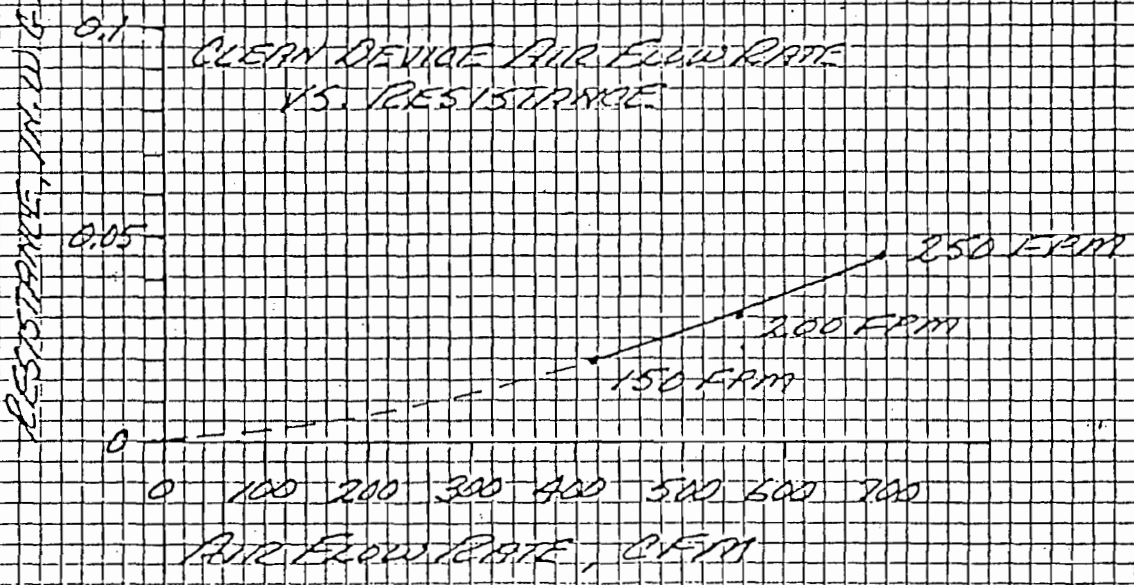 0.1
CLEAN DEVICE AIR FLOW RATE
VS. RESISTANCE
RESISTANCE, IN. W.G
0.05
250 FPM
200 FPM
150 FPM
0
0 100 200 300 400 500 600 700
AIR FLOW RATE, CFM